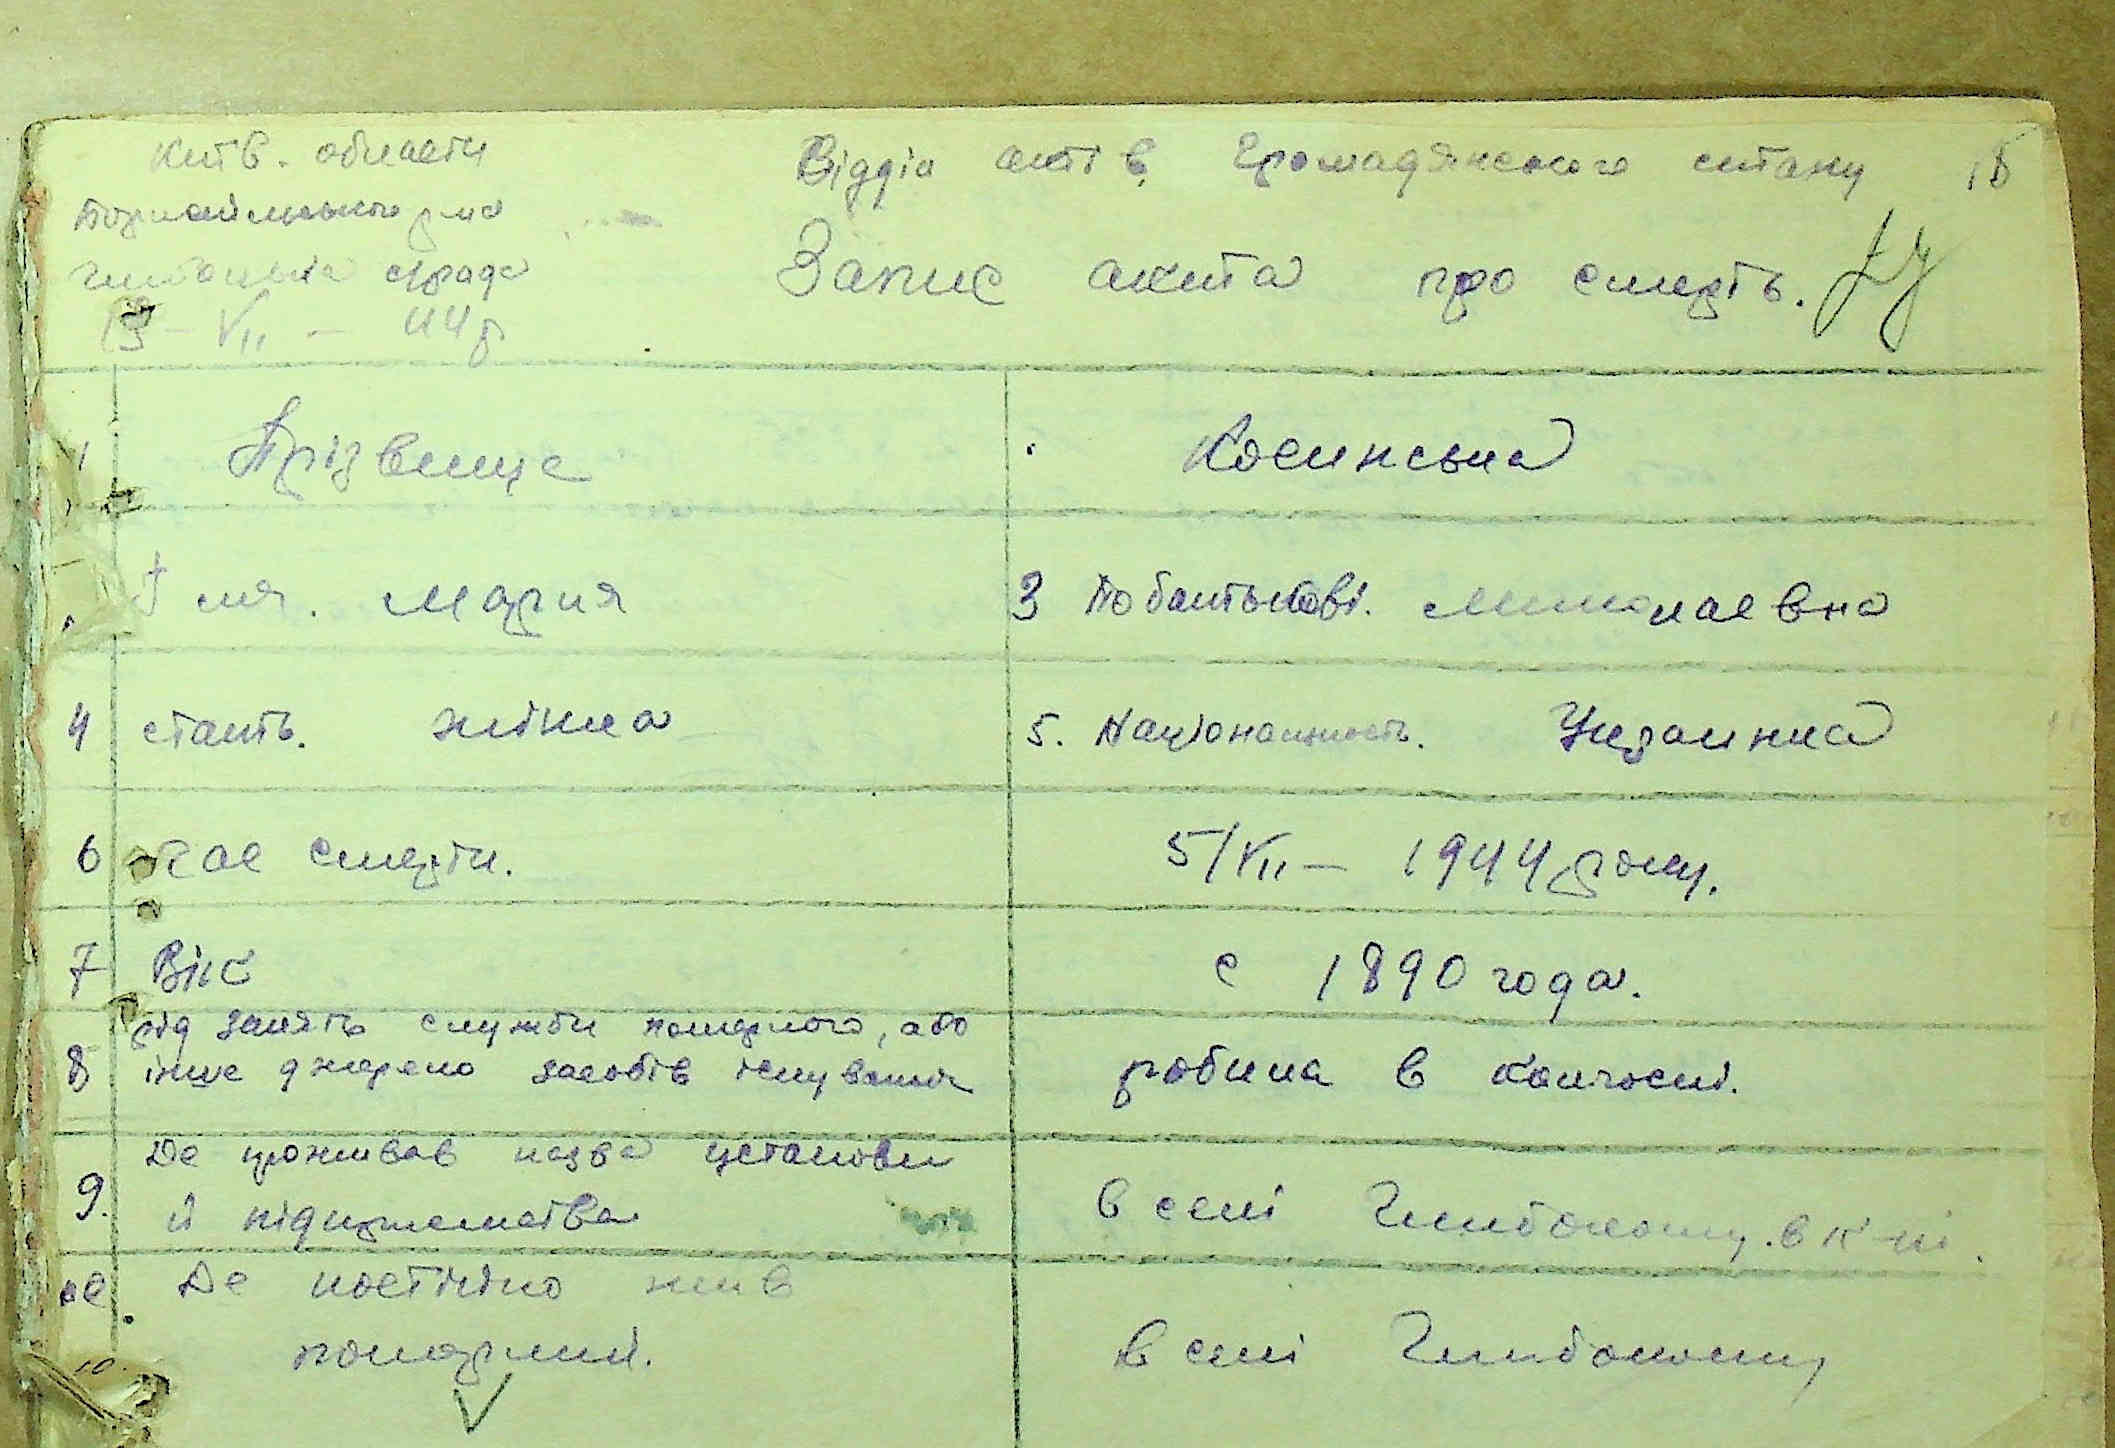 Київ. області
Бориспільського р-на
Глибоцька с/рада
13 - VII - 44 р
Відділ актів Громадянського стану 18
Запис акта про смерть.
1 Прізвище Косинська
Імя. Мария 3 По батькові. Миколаевна
4 стать. жінка 5. Націонацність. Украинка
6 Час смерти. 5/VII - 1944 року.
7 Вік с 1890 года.
8 рід занять служби померлого, або
інше джерело засобів існування робила в колгоспі.
9. Де проживав назва установи
й підприємства в селі Глибокому. в к-зі.
10 Де постійно жив
померлий. в селі Глибокому